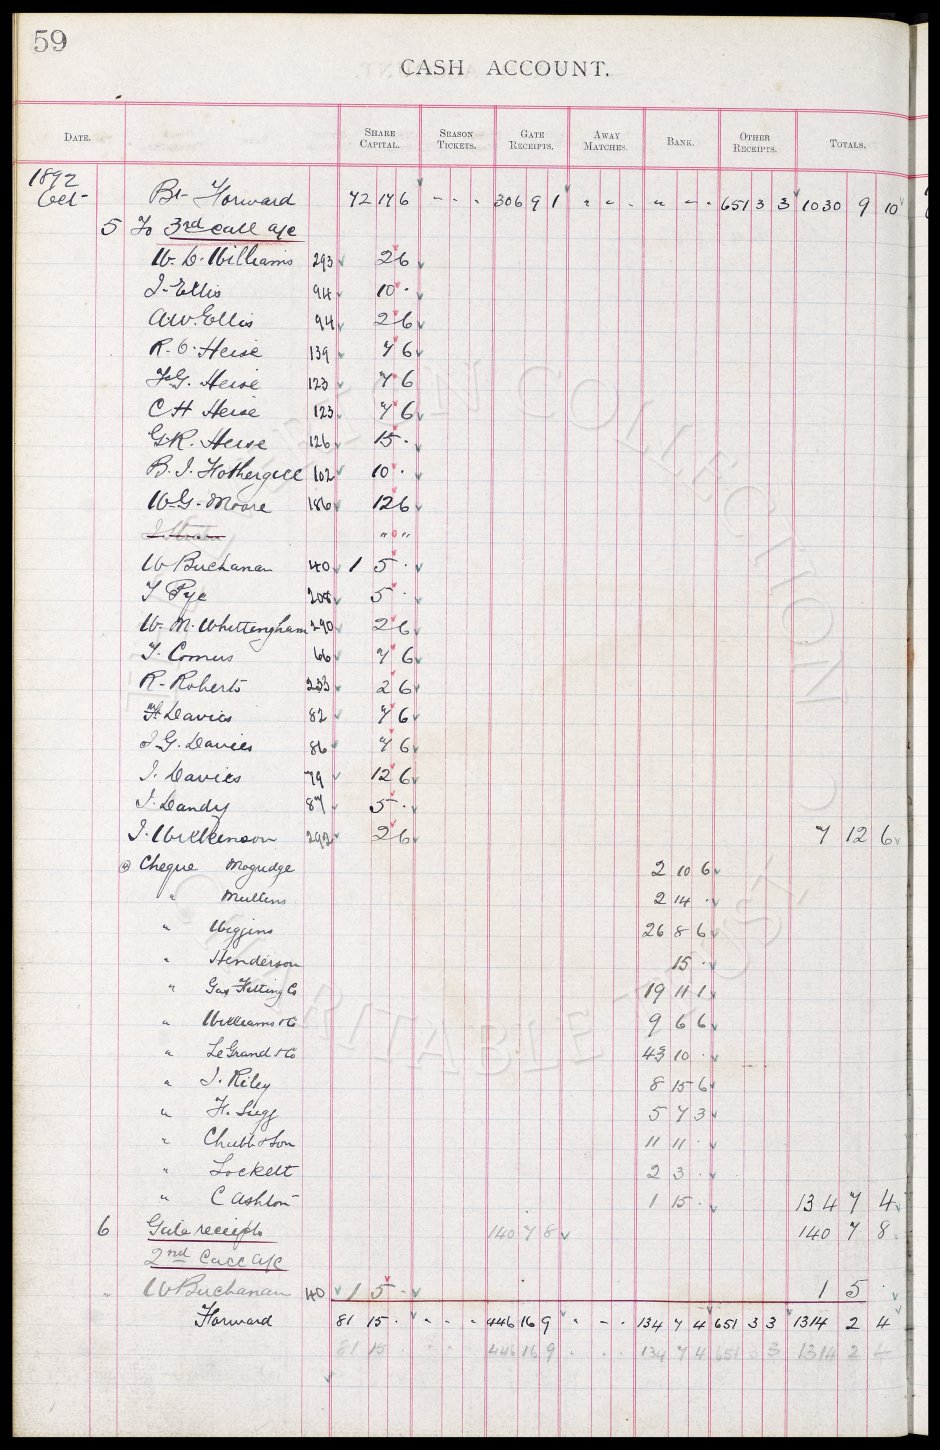 59
CASH ACCOUNT.
DATE. SHARE CAPITAL. SEASON TICKETS. GATE RECEIPTS. AWAY MATCHES. BANK. OTHER RECEIPTS. TOTALS.
1892
Oct Bt Forward 72 17 6 - - - 306 9 1 " " - " " - 651 3 3 1030 9 10
5 To 3rd call a/c
W. D. Williams 293 2 6
J. Ellis 94 10 .
A.W. Ellis 94 2 6
R. O. Heise 139 7 6
F.G. Heise 123 7 6
C H Heise 123 7 6
G.R. Heise 126 15 .
B. J. Fothergill 102 10 .
W.G. Moore 186 12 6
" 0 "
W Buchanan 40 1 5 .
T Pye 208 5 .
W. M. Whittengham 290 2 6
T. Comus 66 7 6
R. Roberts 233 2 6
Davies 82 7 6
J.G. Davies 86 7 6
J. Davies 79 12 6
J. Dandy 87 5 .
J. Wilkinson 292 2 6 7 12 6
Cheque Mogridge 2 10 6
" Mullins 2 14 .
" Wiggins 26 8 6
" Henderson 15 .
" Gas Fitting Co 19 11 1
" Williams & Co 9 6 6
" Le Grand & Co 43 10 .
" J. Riley 8 15 6
" H. Sugg 5 7 3
" Chubb & Son 11 11 .
" Lockett 2 3 .
" C Ashton 1 15 . 134 7 4
6 Gala receipts 140 7 8 140 7 8
2nd Call a/c
" W Buchanan 40 1 5 . 1 5 .
Forward 81 15 . - - - 446 16 9 " - - 134 7 4 651 3 3 1314 2 4
81 15 . . . . 446 16 9 . . . 134 7 4 651 3 3 1314 2 4
EVERTON COLLECTION
CHARITABLE TRUST